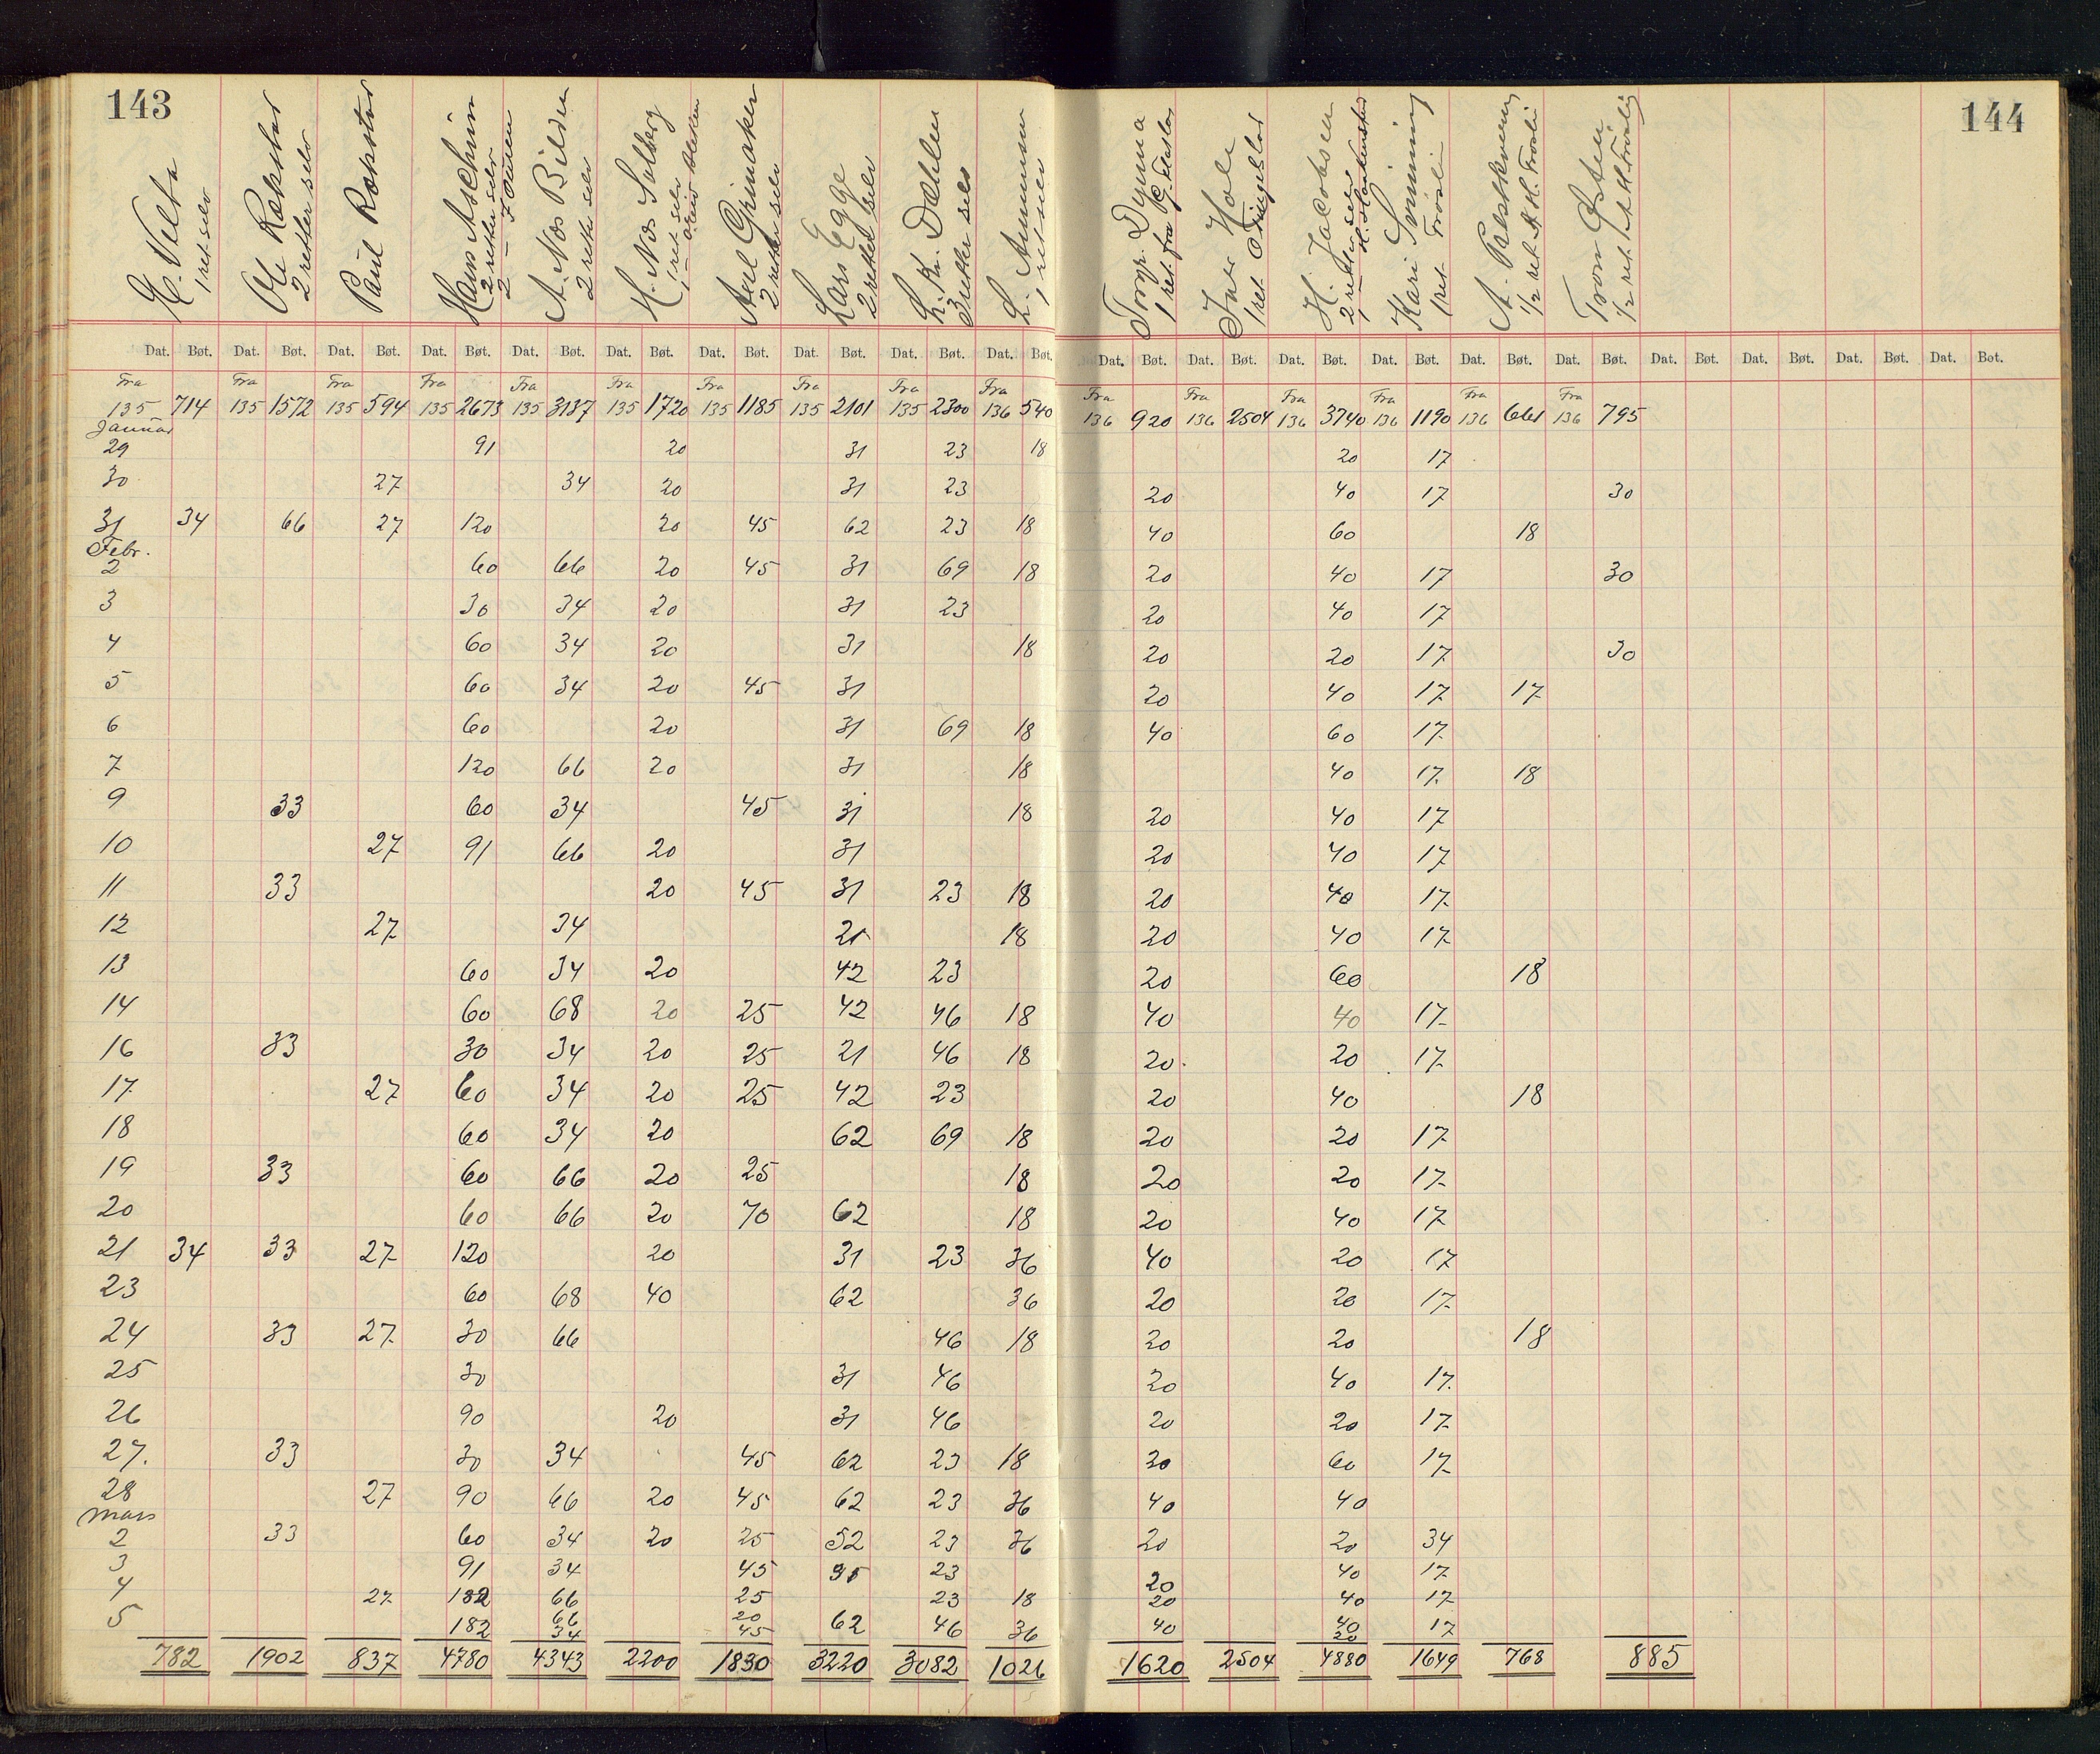 143
144
H. Velta
1 ret selv
Ole Røkstad
2 retter selv
Paul Rokstad
Hans Aschim
2 retter selv
2 —
A. Næs Bilden
2 rett selv
H. Næs Solberg
1 ret selv
Axel Grimaker
2 retter selv
Lars Egge
2 retter selv
L. Kr. Dæhlen
3 retter selv
L. Ammun
1 ret selv
Torgr. Dynna
1 ret fra
Iver Hole
1 ret
H. Jacobsen
2 retter selv
Kari Svinning
1 ret Frøsli
A.
1/2 ret H. Frøsli
Tron Østen
1/2 ret
Dat. Bøt. Dat. Bøt. Dat. Bøt. Dat. Bøt. Dat. Bøt. Dat. Bøt. Dat. Bøt. Dat. Bøt. Dat. Bøt. Dat. Bøt. Dat. Bøt. Dat. Bøt. Dat. Bøt. Dat. Bøt. Dat. Bøt. Dat. Bøt. Dat. Bøt. Dat. Bøt. Dat. Bøt. Dat. Bøt.
Fra Fra Fra Fra Fra Fra Fra Fra Fra Fra Fra Fra Fra Fra Fra Fra
135 714 135 1572 135 594 135 2673 135 3137 135 1720 135 1185 135 2101 135 2300 136 540 136 920 136 2504 136 3740 136 1190 136 661 136 795
Januar
29 91 20 31 23 18 20 17
30 27 34 20 31 23 20 40 17 30
31 34 66 27 120 20 45 62 23 18 40 60 18
Febr.
2 60 66 20 45 31 69 18 20 40 17 30
3 30 34 20 31 23 20 40 17
4 60 34 20 31 18 20 20 17 30
5 60 34 20 45 31 20 40 17 17
6 60 20 31 69 18 40 60 17
7 120 66 20 31 18 40 17 18
9 33 60 34 45 31 18 20 40 17
10 27 91 66 20 31 20 40 17
11 33 20 45 31 23 18 20 40 17
12 27 34 21 18 20 40 17
13 60 34 20 42 23 20 60 18
14 60 68 20 25 42 46 18 40 40 17
16 33 30 34 20 25 21 46 18 20 20 17
17 27 60 34 20 25 42 23 20 40 18
18 60 34 20 62 69 18 20 20 17
19 33 60 66 20 25 18 20 20 17
20 60 66 20 70 62 18 20 40 17
21 34 33 27 120 20 31 23 36 40 20 17
23 60 68 40 62 36 20 20 17
24 33 27 30 66 46 18 20 20 18
25 30 31 46 20 40 17
26 90 20 31 46 20 20 17
27. 33 30 34 45 62 23 18 20 60 17
28 27 90 66 20 45 62 23 36 40 40
Mars
2 33 60 34 20 25 52 23 36 20 20 34
3 91 34 45 95 23 20 40 17
4 27 182 66 25 23 18 20 40 17
5 182 66 20 62 46 36 40 40 17
34 45 20
782 1902 837 4780 4343 2200 1830 3220 3082 1026 1620 2504 4880 1649 768 885